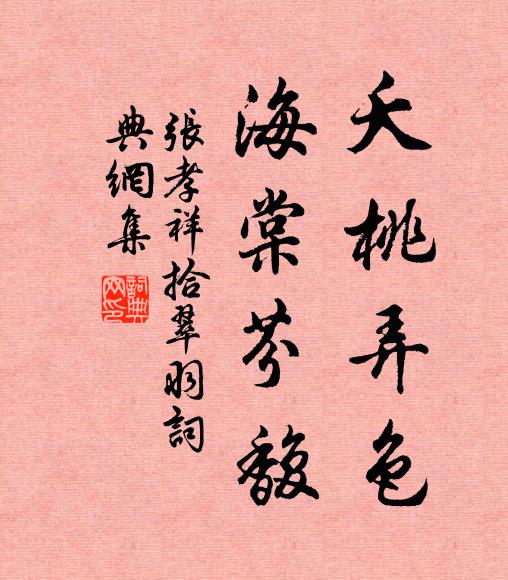 夭桃弄色
海棠芬馥
張孝祥拾翠羽詞
典網集
詞典
网印